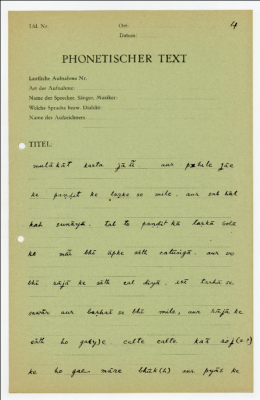 Lfd. Nr. Ort: 4
Datum:
PHONETISCHER TEXT
Lautliche Aufnahme Nr.
Art der Aufnahme:
Name der Sprecher, Sänger, Musiker:
Welche Sprache bezw. Dialekt:
Name des Aufnehmers
TITEL:
mulākāt karta jātī aur pahale jāe
ke paṇḍit ke laṛke se mile. aur sab hāl
kah sunāyā. tab to paṇḍit kā laṛkā bolā
ke maĩ bhī āpke sāth calūngā. aur vo
bhī rājā ke sāth cal diyā. isī tarha se
aur baṛhaī se bhī mile, aur rājā ke
sāth ho gaye calte calte kaī roj
ke ho gae māre bhūk(h) aur pyās ke